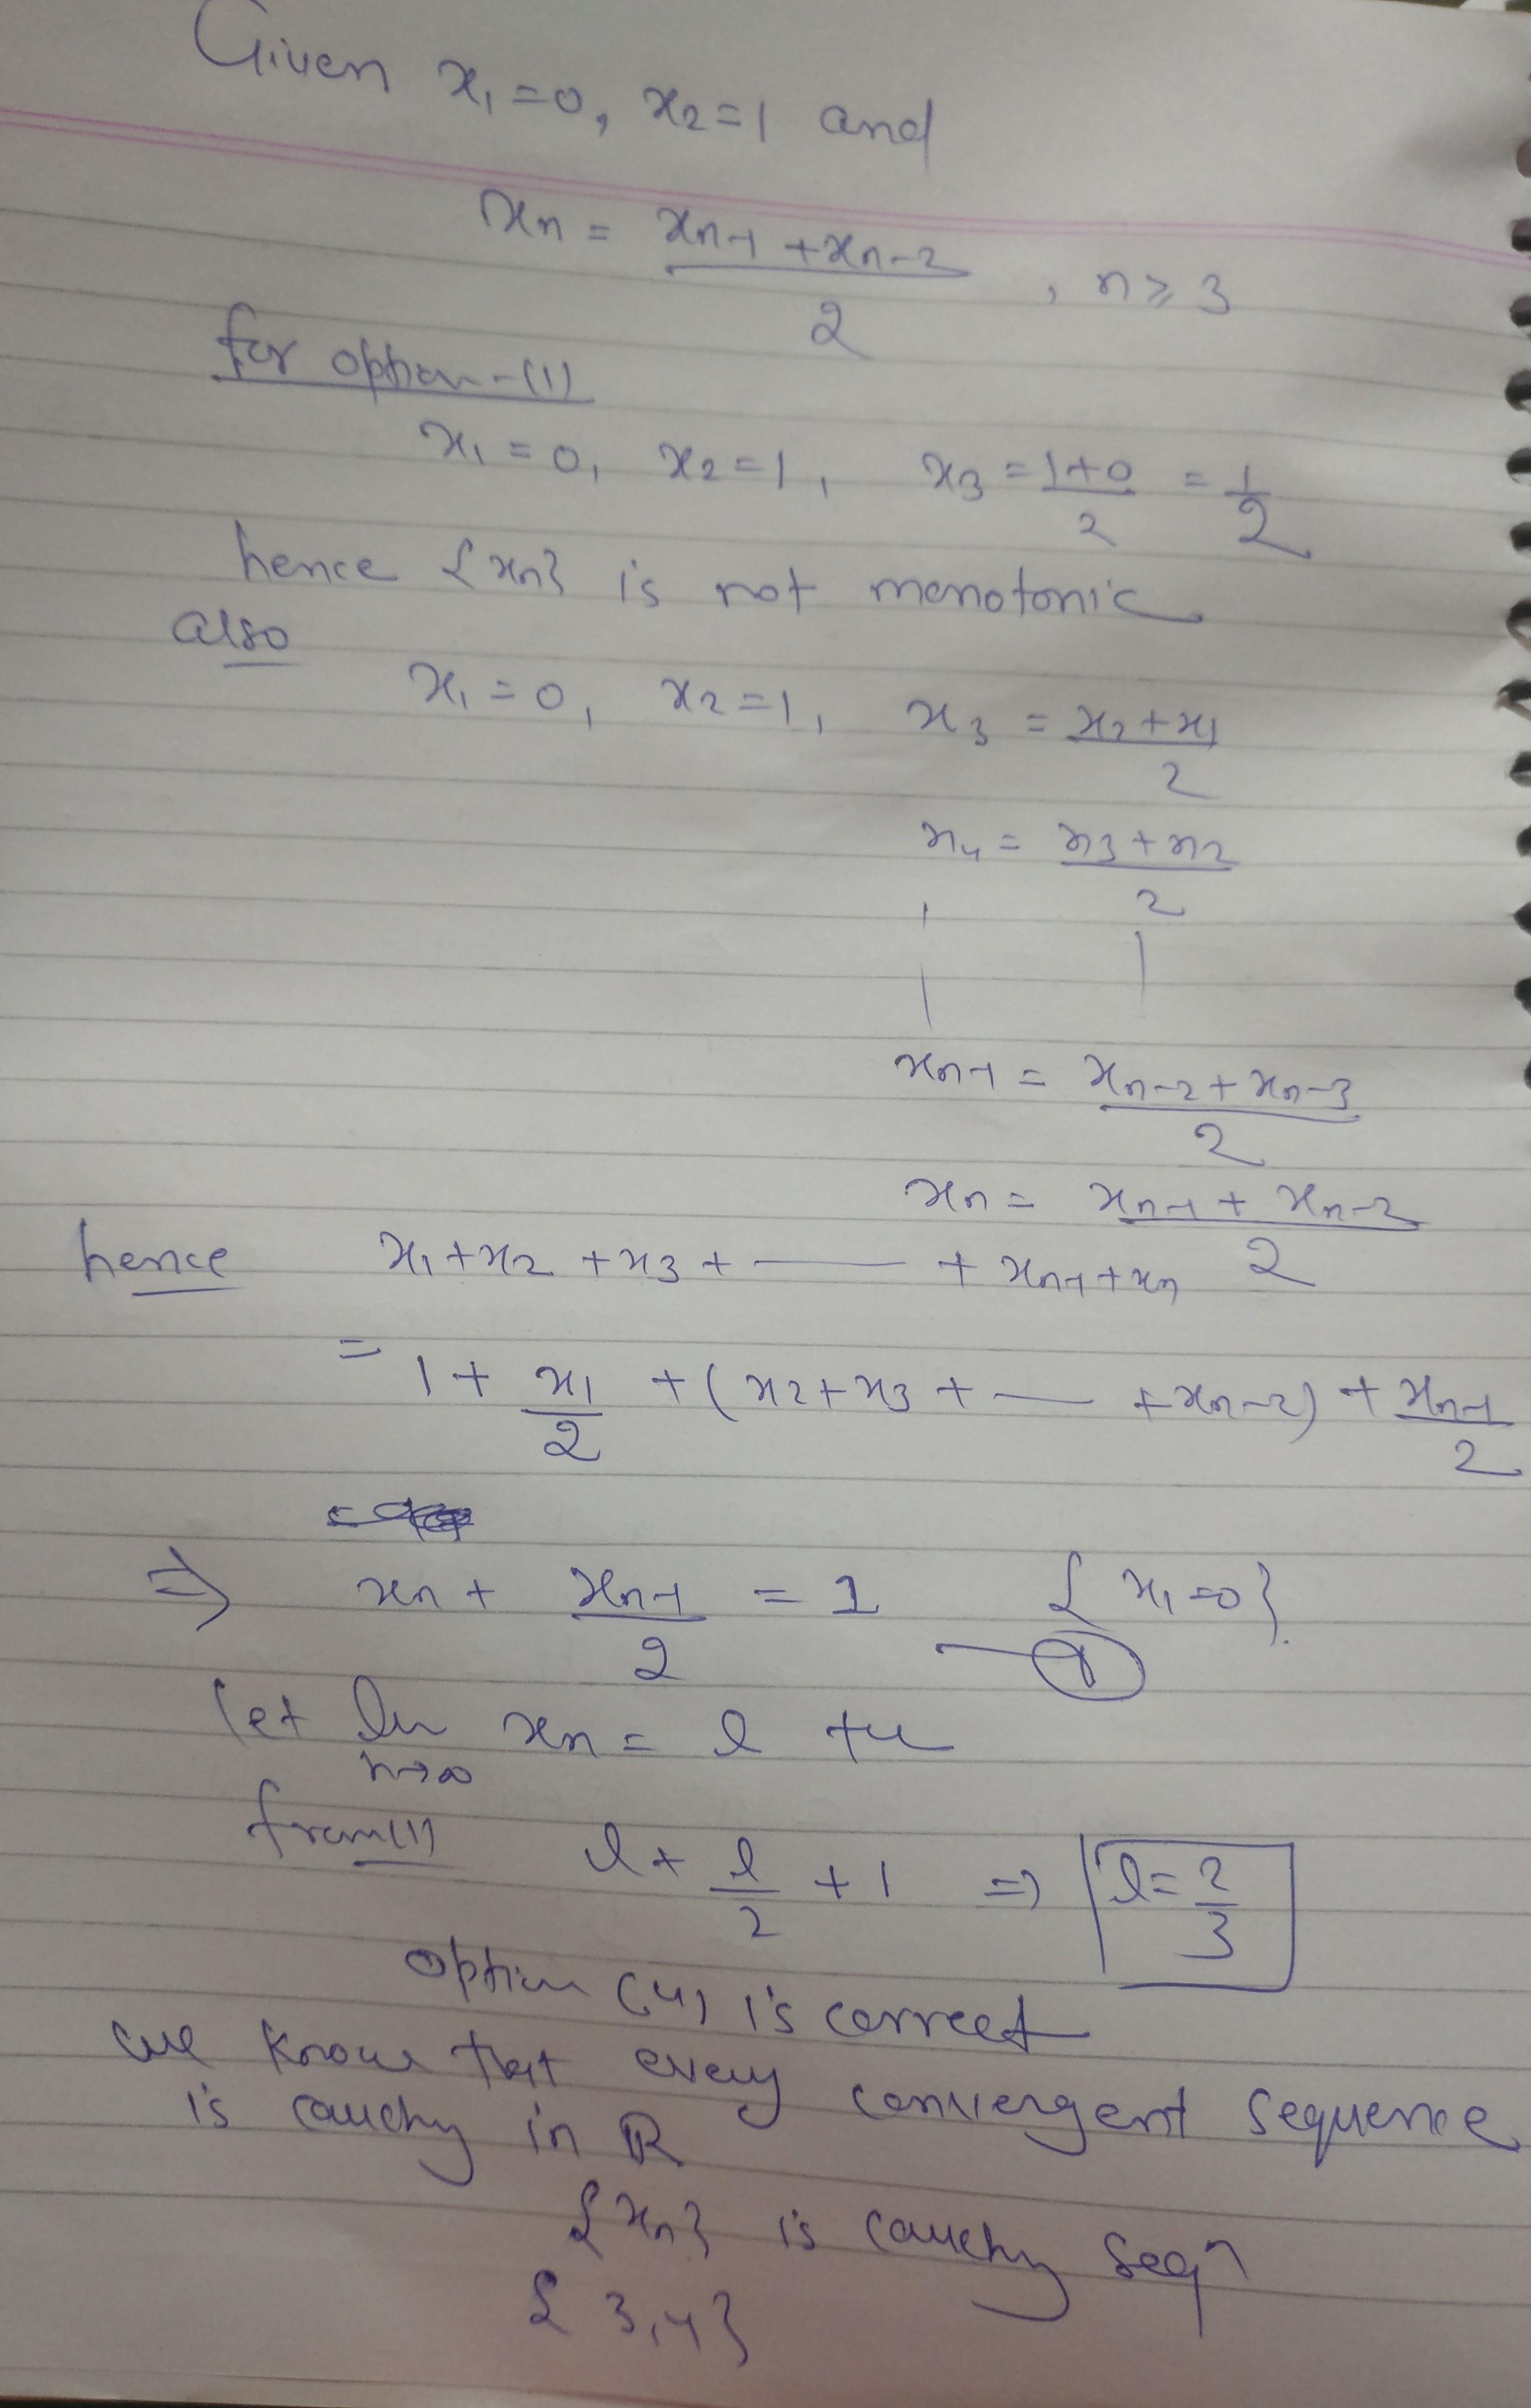 Given x₁=0, x₂=1 and
xₙ = (xₙ₋₁ + xₙ₋₂)/2 , n ≥ 3
for option-(1)
x₁ = 0, x₂ = 1, x₃ = (1+0)/2 = 1/2
hence {xₙ} is not monotonic
also
x₁ = 0, x₂ = 1, x₃ = (x₂+x₁)/2
x₄ = (x₃+x₂)/2
xₙ₋₁ = (xₙ₋₂ + xₙ₋₃)/2
xₙ = (xₙ₋₁ + xₙ₋₂)/2
hence x₁ + x₂ + x₃ + —— + xₙ₋₁ + xₙ
= 1 + x₁/2 + (x₂ + x₃ + —— + xₙ₋₂) + xₙ₋₁/2
⇒ xₙ + xₙ₋₁/2 = 1 {x₁=0}. — ①
let lim n→∞ xₙ = l
from (1) l + l/2 + 1 ⇒ l = 2/3
option (4) is correct
we know that every convergent sequence
is cauchy in ℝ
{xₙ} is cauchy seqⁿ
{3,4}